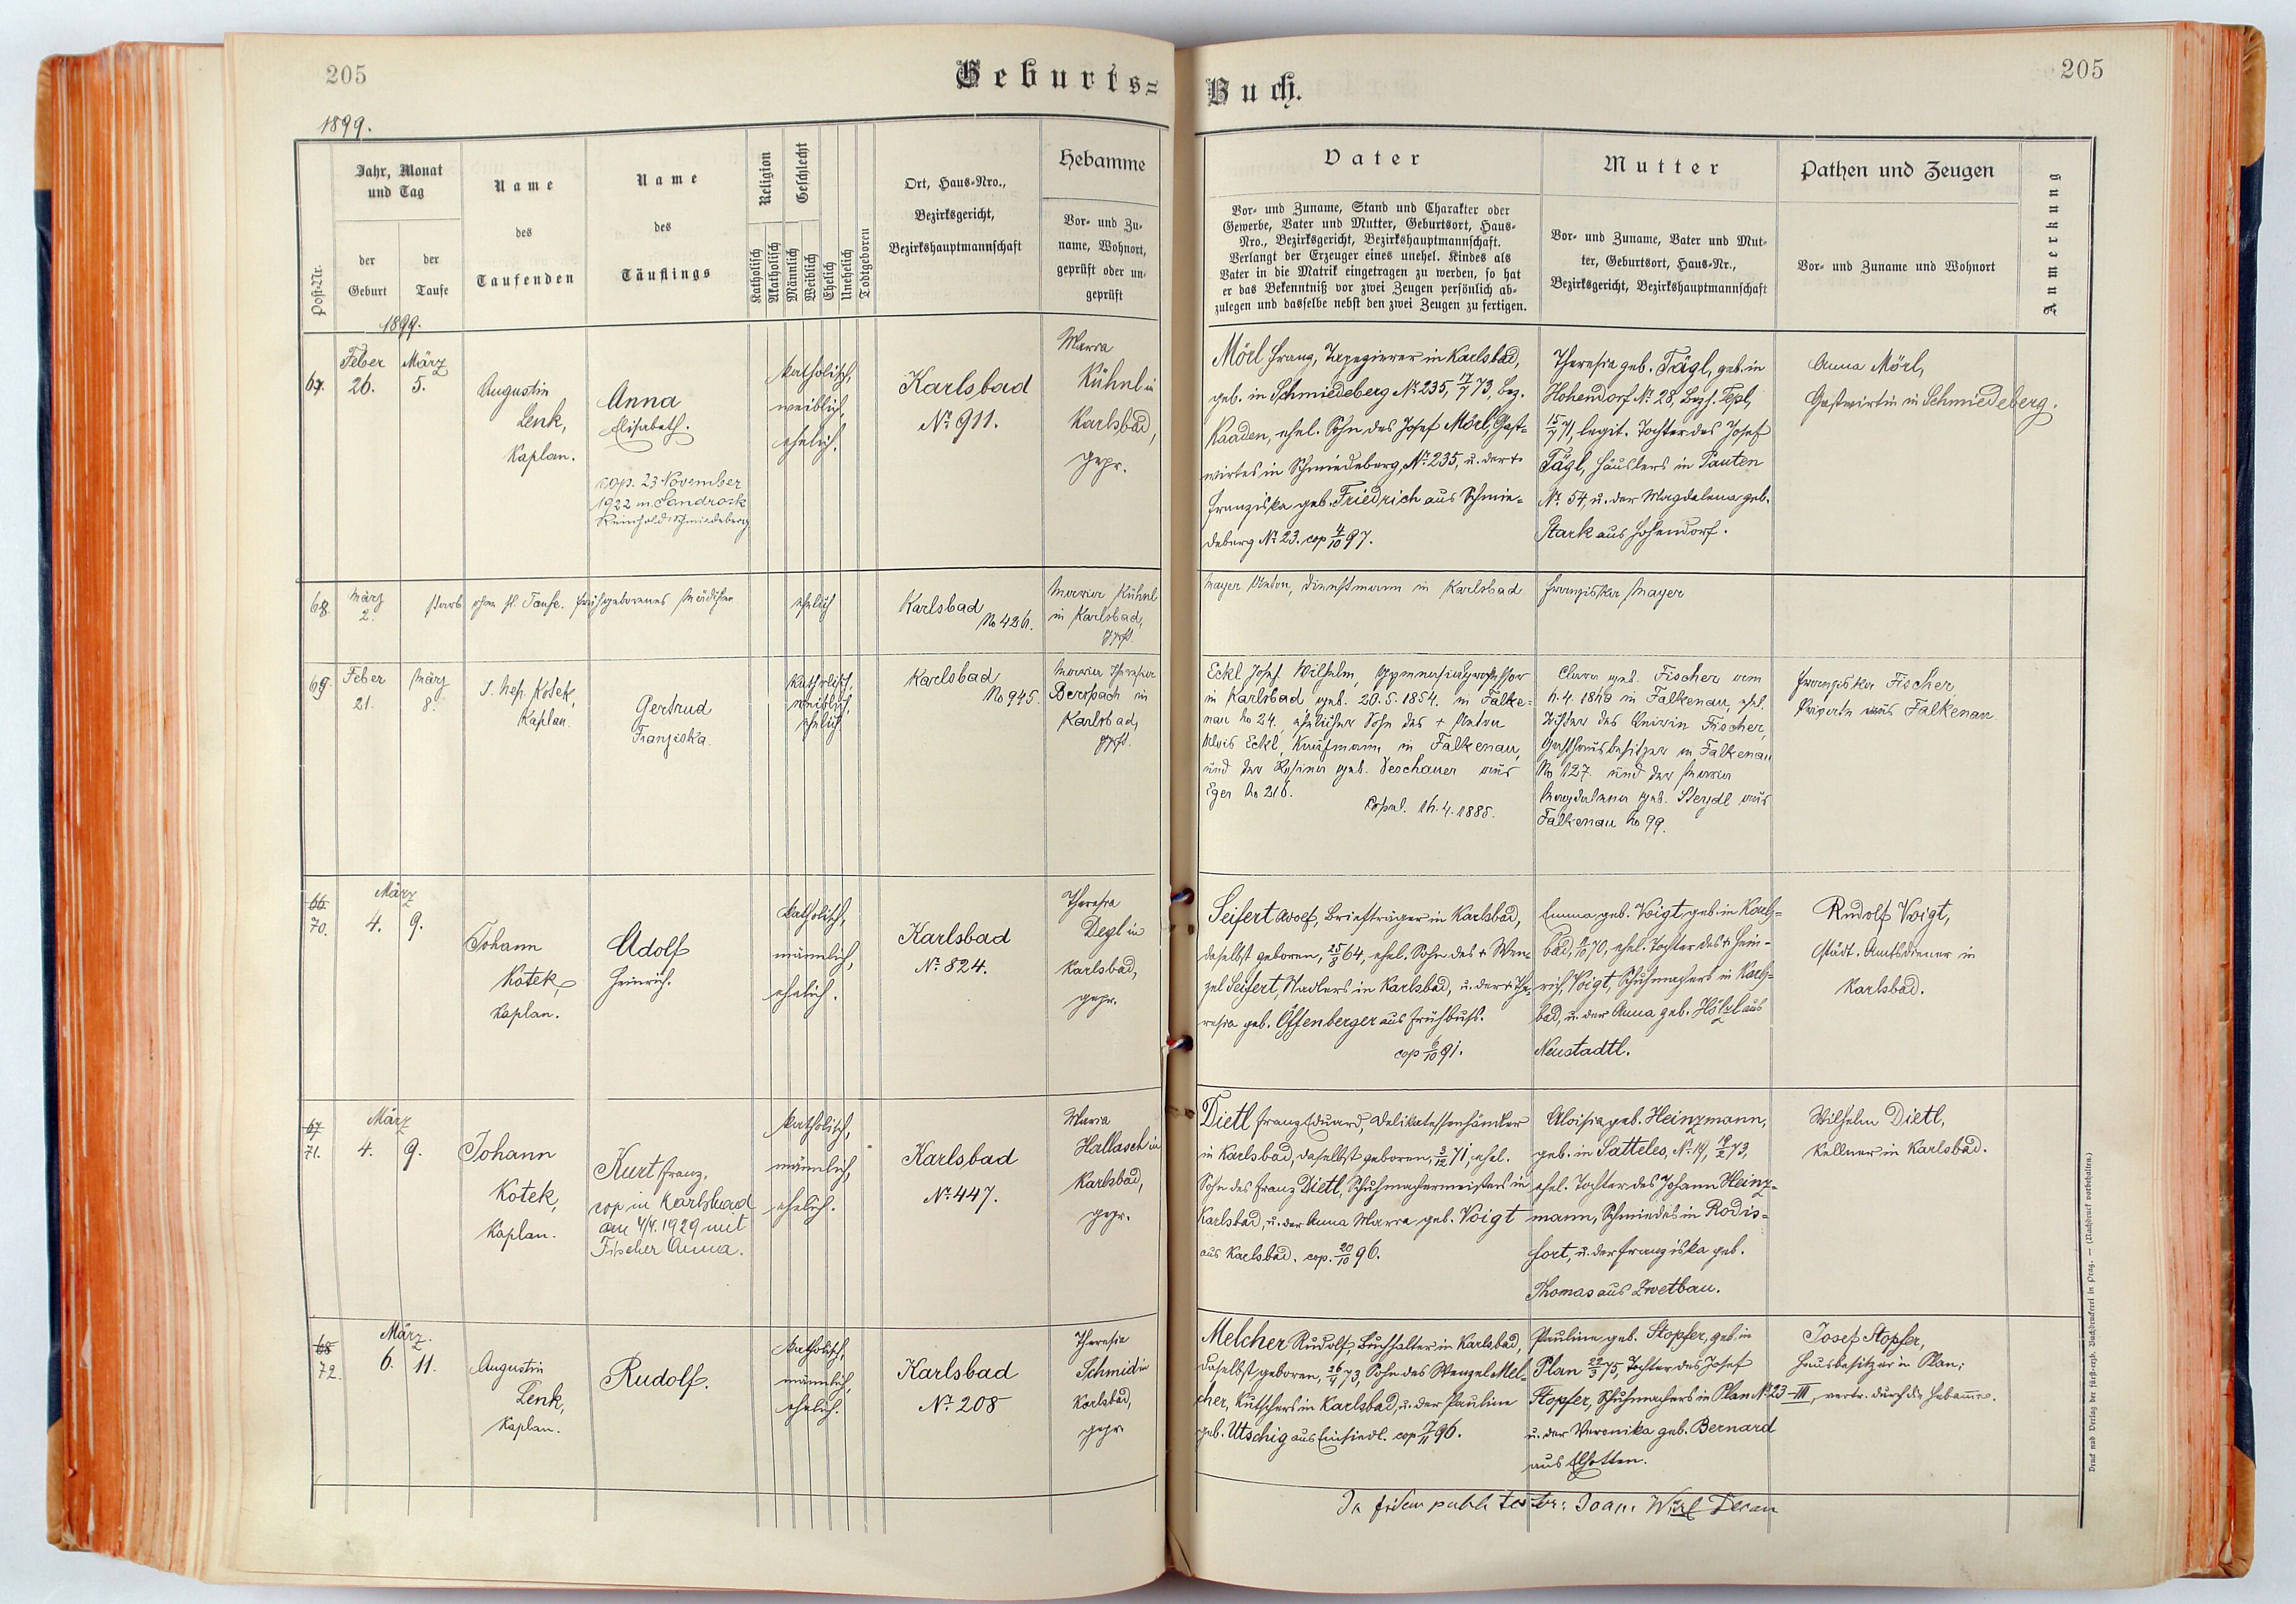 205
Geburts=
Buch.
205
1899.
Post-Nr.
Jahr, Monat
und Tag
der
Geburt
der
Taufe
Name
des
Taufenden
Name
des
Täuflings
Religion
Katholisch
Akatholisch
Geschlecht
Männlich
Weiblich
Ehelich
Unehelich
Todtgeboren
Ort, Haus-Nro.,
Bezirksgericht,
Bezirkshauptmannschaft
Hebamme
Vor- und Zu-
name, Wohnort,
geprüft oder un-
geprüft
Vater
Vor- und Zuname, Stand und Charakter oder
Gewerbe, Vater und Mutter, Geburtsort, Haus-
Nro., Bezirksgericht, Bezirkshauptmannschaft.
Verlangt der Erzeuger eines unehel. Kindes als
Vater in die Matrik eingetragen zu werden, so hat
er das Bekenntniß vor zwei Zeugen persönlich ab-
zulegen und dasselbe nebst den zwei Zeugen zu fertigen.
Mutter
Vor- und Zuname, Vater und Mut-
ter, Geburtsort, Haus-Nr.,
Bezirksgericht, Bezirkshauptmannschaft
Pathen und Zeugen
Vor- und Zuname und Wohnort
Anmerkung
1899.
67.
Feber
26.
März
5.
Augustin
Lenk,
Kaplan.
Anna
Elisabeth.
cop. 23 November
1922 m. Sandrock
Reinhold Schmiedeberg
katholisch,
weiblich,
ehelich.
Karlsbad
No 911.
Maria
Kühnl in
Karlsbad,
gepr.
Mörl Franz, Tapezierer in Karlsbad,
geb. in Schmiedeberg No 235, 17/7 73, Bez.
Kaaden, ehel. Sohn des Josef Mörl, Gast-
wirtes in Schmiedeberg, No 235, u. der +
Franziska geb. Friedrich aus Schmie-
deberg No 23. cop 4/10 97.
Theresia geb. Tägl, geb. in
Hohendorf No 28, Bezh. Tepl,
15/7 71, legit. Tochter des Josef
Tägl, Häuslers in Pauten
No 54, u. der Magdalena geb.
Stark aus Hohendorf.
Anna Mörl,
Gastwirtin in Schmiedeberg.
68.
März
2.
starb ohne hl. Taufe. frühgeborenes Mädchen
ehelich
Karlsbad
No 426.
Maria Kühnl
in Karlsbad,
gprft.
Mayer Anton, Dienstmann in Karlsbad
Franziska Mayer
69.
Feber
21.
März
8.
J. Nep. Kotek,
Kaplan.
Gertrud
Franziska.
katholisch,
weiblich,
ehelich.
Karlsbad
No 945.
Maria Theresia
in
Karlsbad,
gprft.
Eckl Josef Wilhelm, Gymnasialprofessor
in Karlsbad geb. 20.5.1854. in Falke-
nau No 24. ehelicher Sohn des + Anton
Alois Eckl, Kaufmann in Falkenau,
und der Rosina geb. Veschauer aus
Eger No 216.
Copul. 16.4.1885.
Clara geb. Fischer am
in Falkenau, ehel.
Tochter des Fischer,
Gasthausbesitzer in Falkenau
No 127. und der Maria
Magdalena geb. Steydl aus
Falkenau No 99.
Franziska Fischer,
Private aus Falkenau.
66.
70.
März
4.
9.
Johann
Kotek,
Kaplan.
Adolf
Heinrich.
katholisch,
männlich,
ehelich.
Karlsbad
No 824.
Theresia
Degl in
Karlsbad,
gepr.
Seifert Adolf, Briefträger in Karlsbad,
daselbst geboren, 25/8 64, ehel. Sohn des + Wen-
zel Seifert, Nadlers in Karlsbad, u. der + The-
resia geb. Offenberger aus Frühbuß.
cop 6/10 91.
Emma geb. Voigt, geb. in Karls-
bad, 70, ehel. Tochter des + Hein-
rich Voigt, Schuhmachers in Karls-
bad, u. der Anna geb. Hölzl aus
Neustadtl.
Rudolf Voigt,
städt. Amtsdiener in
Karlsbad.
67
71.
März
4.
9.
Johann
Kotek,
Kaplan.
Kurt Franz.
cop in Karlsbad
am 4/4. 1929 mit
Fischer Anna.
katholisch,
männlich,
ehelich.
Karlsbad
No 447.
Maria
Hallasch in
Karlsbad,
gepr.
Dietl Franz Eduard, Delikatessenhändler
in Karlsbad, daselbst geboren, 3/12 71, ehel.
Sohn des Franz Dietl, Schuhmachermeisters in
Karlsbad, u. der Anna Maria geb. Voigt
aus Karlsbad. cop. 20/10 96.
Aloisia geb. Heinzmann,
geb. in Satteles, No 19, 19/2 73,
ehel. Tochter des Johann Heinz-
mann, Schmiedes in Rodis-
fort, u. der Franziska geb.
Thomas aus Zwetbau.
Wilhelm Dietl,
Kellner in Karlsbad.
68
72.
März.
6.
11.
Augustin
Lenk,
Kaplan.
Rudolf.
katholisch,
männlich,
ehelich.
Karlsbad
No 208
Theresia
Schmid in
Karlsbad,
gepr.
Melcher Rudolf, Buchhalter in Karlsbad,
daselbst geboren, 26/4 73, Sohn des Wenzel Mel-
cher, Kutschers in Karlsbad, u. der Pauline
geb. Utschig aus Einsiedl. cop 7/11 96.
Pauline geb. Stopfer, geb. in
Plan 22/3 75, Tochter des Josef
Stopfer, Schuhmachers in Plan No 23-III,
u. der Veronika geb. Bernard
aus
Josef Stopfer,
Hausbesitzer in Plan;
vertr. durch die Hebamme.
In fidem publ. testor: Joan. Wirl Decan
Druck und Verlag der fürst-erzb. Buchdruckerei in Prag. — (Nachdruck vorbehalten.)